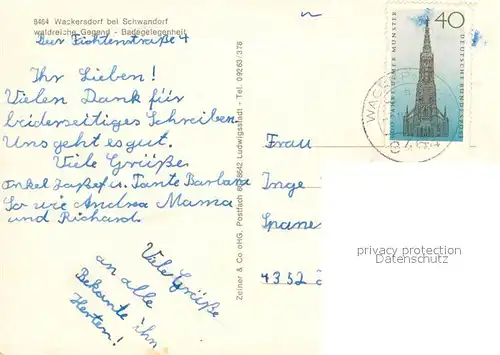 8464 Wackersdorf bei Schwandorf
waldreiche Gegend - Badegelegenheit
Ihr Lieben!
Vielen Dank für
beiderseitiges Schreiben.
Uns geht es gut.
Viele Grüße
Onkel Josef u. Tante Barbara
So wie Andrea Mama
und Richard.
Viele Grüße
an alle
Bekante ihn
Herten!
Zeiner & Co oHG, Postfach 80, 8642 Ludwigsstadt - Tel. 09263/378
600 JAHRE ULMER MÜNSTER
40
DEUTSCHE BUNDESPOST
Frau
Inge
4352
privacy protection
Datenschutz